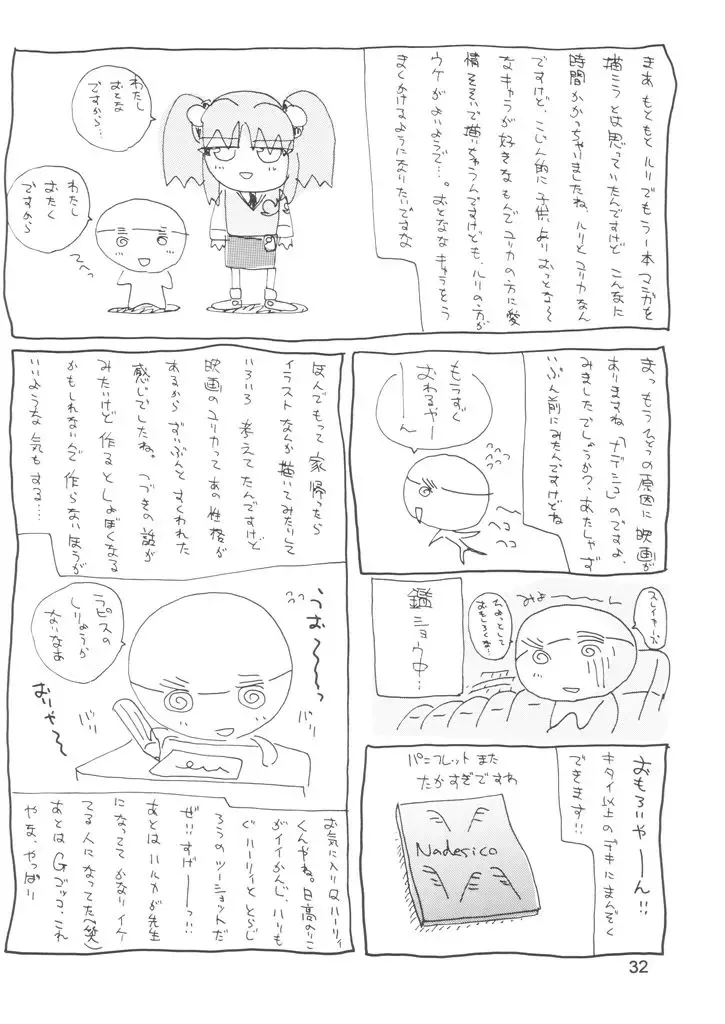 まあもともとルリでもう一本マンガを
描こうとは思っていたんですけどこんなに
時間かかっちゃいましたね、ルリとユリカなん
ですけど、こじん的に子供よりおっとな〜
なキャラが好きなもんでユリカの方に愛
情そそいで描いちゃうんですけども、ルリの方が
ウケがよいようで…。おとななキャラをう
まくかけるようになりたいですな
わたし
おとな
ですから…
わたし
おたく
ですから
てへっ
まっもうひとつの原因に映画が
ありますね「ナデシコ」のですよ、
みましたでしょうか?、あたしゃず
いぶん前にみたんですけどね
もうすぐ
おわるやー
ーん
ヘコ
ヘコ
ヘコ
スレイヤーズ
ちょっとして
おもしろくな…
みょーーん
鑑
ショウ中…
おもろいやーーん!!
キタイ以上のデキにまんぞく
できます!!
パンフレットまた
たかすぎですわ
Nadesico
ほんでもって家帰ったら
イラストなんか描いてみたりして
いろいろ考えてたんですけど
映画のユリカってあの性格が
あるからずいぶんとすくわれた
感じでしたね。つづきの話が
みたいけど作るとしょぼくなる
かもしれないんで作らないほうが
いいような気もする…
うお〜〜っ
ラピスの
しりょうが
ないなあ
バリ
バリ
おーやー〜
お気に入りはハーリィ
くんやね。日高のりこ
がイイかんじ、ハリも
ぐハーリィととらじ
ろうのツーショットだ
ぜ!!すげーーっ!!
あとはハルカが先生
になっててかなりイケ
てる人になってた(笑)
あとはGゲッコ、これ
やね、やっぱり
32